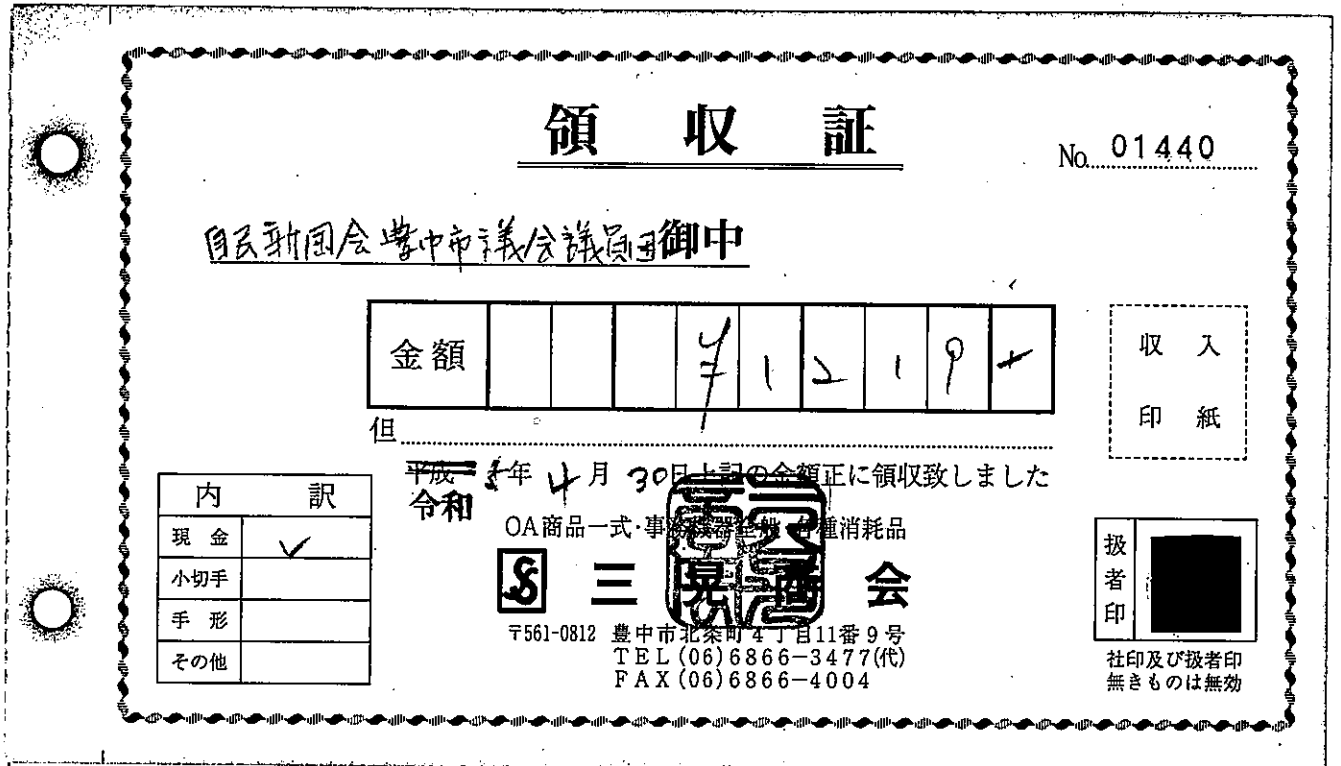 領収証
No. 01440
自民新風会豊中市議会議員団御中
金額 ¥1219
収入
印紙
但
平成 年 4月 30日上記の金額正に領収致しました
令和
内訳
現金 ✓
小切手
手形
その他
OA商品一式・事務機器全般・各種消耗品
三晃商会
〒561-0812 豊中市北条町4丁目11番9号
TEL (06)6866-3477(代)
FAX (06)6866-4004
扱者印
社印及び扱者印
無きものは無効